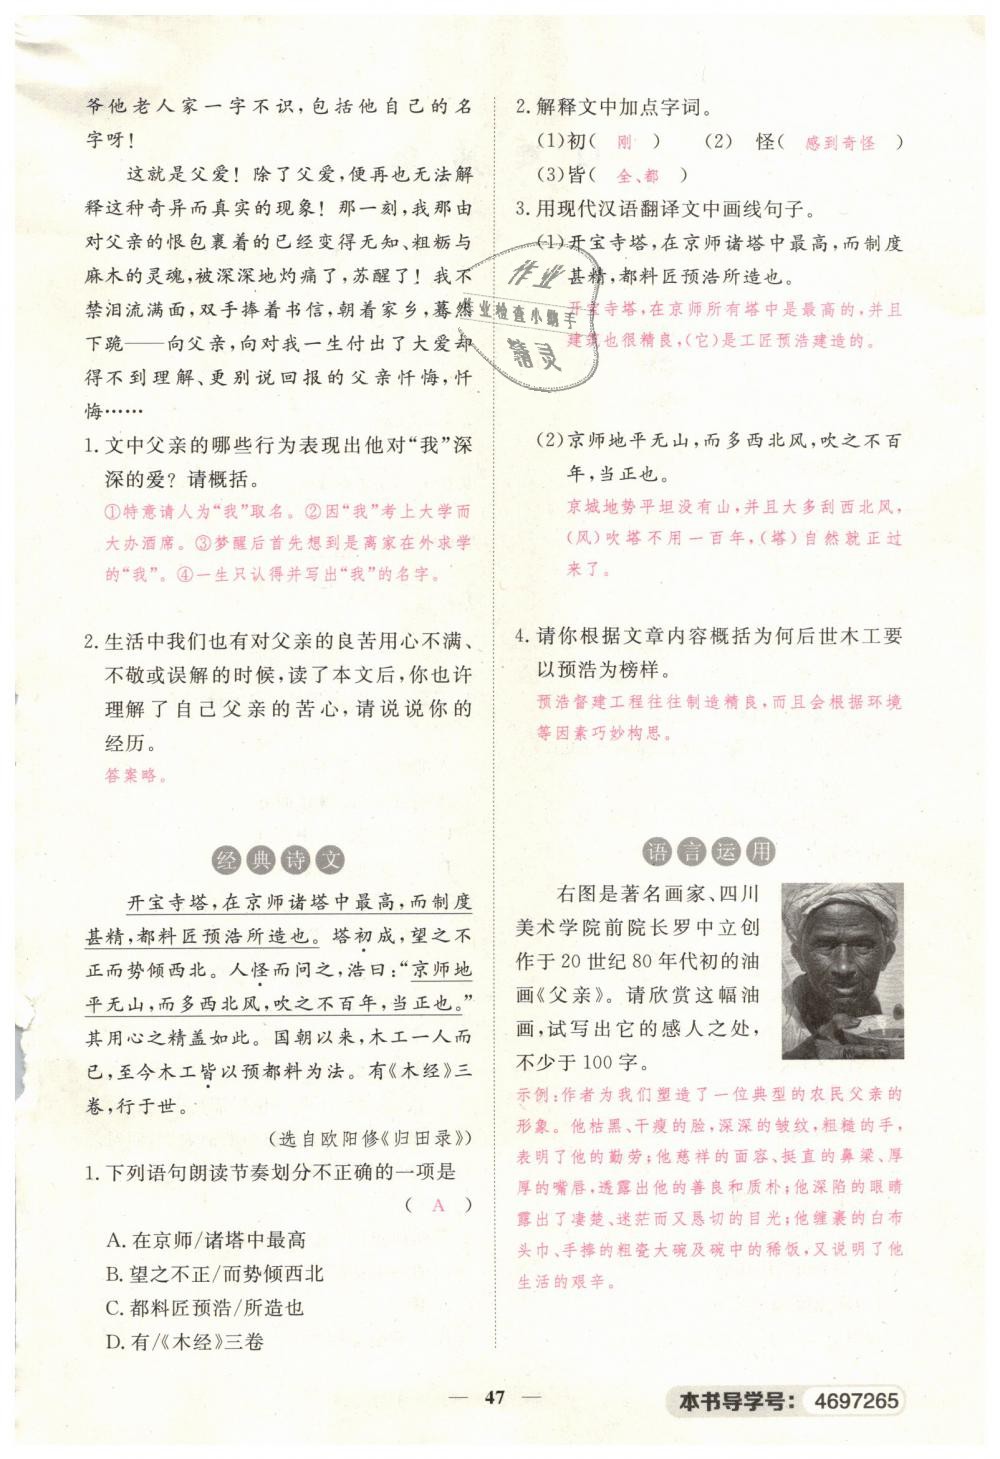 爷他老人家一字不识,包括他自己的名
字呀!
这就是父爱!除了父爱,便再也无法解
释这种奇异而真实的现象!那一刻,我那由
对父亲的恨包裹着的已经变得无知、粗粝与
麻木的灵魂,被深深地灼痛了,苏醒了!我不
禁泪流满面,双手捧着书信,朝着家乡,蓦然
下跪——向父亲,向对我一生付出了大爱却
得不到理解、更别说回报的父亲忏悔,忏
悔……
1. 文中父亲的哪些行为表现出他对“我”深
深的爱?请概括。
①特意请人为“我”取名。②因“我”考上大学而
大办酒席。③梦醒后首先想到是离家在外求学
的“我”。④一生只认得并写出“我”的名字。
2. 生活中我们也有对父亲的良苦用心不满、
不敬或误解的时候,读了本文后,你也许
理解了自己父亲的苦心,请说说你的
经历。
答案略。
经典诗文
开宝寺塔,在京师诸塔中最高,而制度
甚精,都料匠预浩所造也。塔初成,望之不
正而势倾西北。人怪而问之,浩曰:“京师地
平无山,而多西北风,吹之不百年,当正也。”
其用心之精盖如此。国朝以来,木工一人而
已,至今木工皆以预都料为法。有《木经》三
卷,行于世。
(选自欧阳修《归田录》)
1. 下列语句朗读节奏划分不正确的一项是
( A )
A. 在京师/诸塔中最高
B. 望之不正/而势倾西北
C. 都料匠预浩/所造也
D. 有/《木经》三卷
2. 解释文中加点字词。
(1)初( 刚 ) (2) 怪( 感到奇怪 )
(3)皆( 全、都 )
3. 用现代汉语翻译文中画线句子。
(1)开宝寺塔,在京师诸塔中最高,而制度
甚精,都料匠预浩所造也。
开宝寺塔,在京师所有塔中是最高的,并且
建筑也很精良,(它)是工匠预浩建造的。
(2)京师地平无山,而多西北风,吹之不百
年,当正也。
京城地势平坦没有山,并且大多刮西北风,
(风)吹塔不用一百年,(塔)自然就正过
来了。
4. 请你根据文章内容概括为何后世木工要
以预浩为榜样。
预浩督建工程往往制造精良,而且会根据环境
等因素巧妙构思。
语言运用
右图是著名画家、四川
美术学院前院长罗中立创
作于20世纪80年代初的油
画《父亲》。请欣赏这幅油
画,试写出它的感人之处,
不少于100字。
示例:作者为我们塑造了一位典型的农民父亲的
形象。他枯黑、干瘦的脸,深深的皱纹,粗糙的手,
表明了他的勤劳;他慈祥的面容、挺直的鼻梁、厚
厚的嘴唇,透露出他的善良和质朴;他深陷的眼睛
露出了凄楚、迷茫而又恳切的目光;他缠裹的白布
头巾、手捧的粗瓷大碗及碗中的稀饭,又说明了他
生活的艰辛。
作业
作业检查小帮手
精灵
— 47 —
本书导学号: 4697265